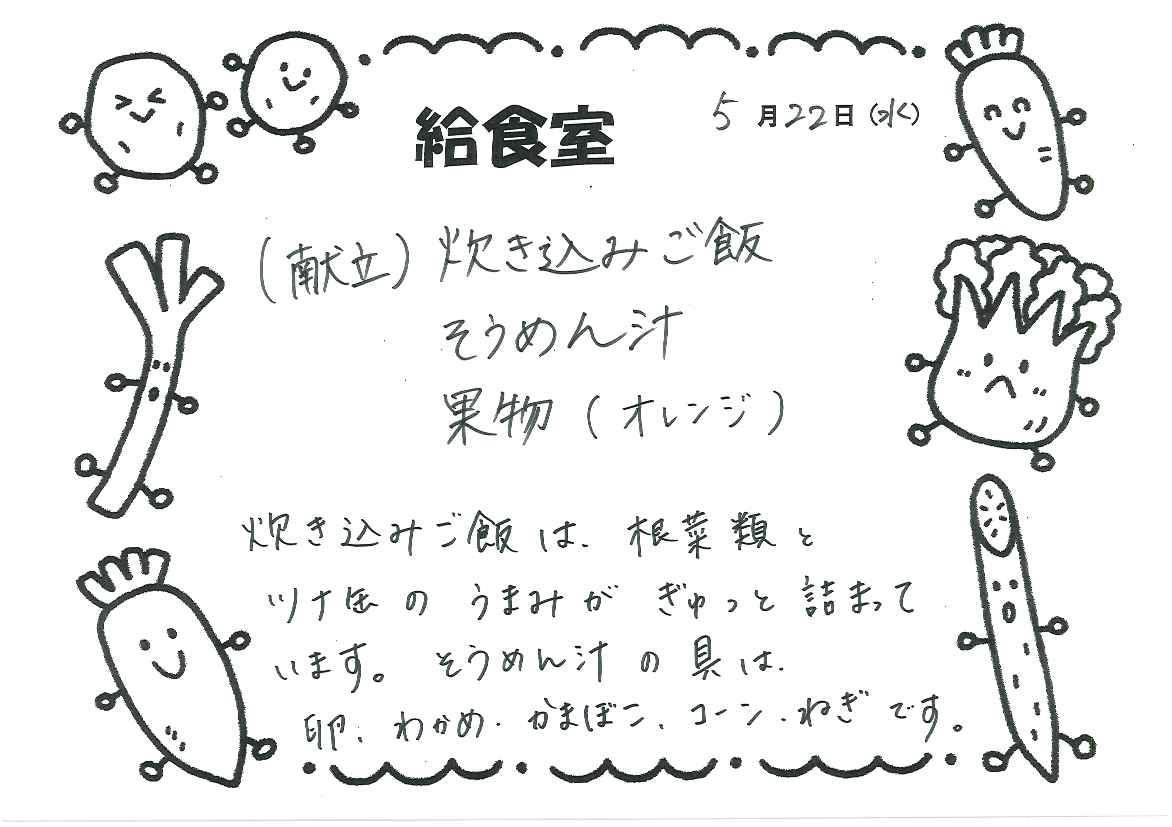 給食室
5月22日(水)
(献立) 炊き込みご飯
そうめん汁
果物(オレンジ)
炊き込みご飯は、根菜類と
ツナ缶のうまみがぎゅっと詰まって
います。そうめん汁の具は、
卵、わかめ、かまぼこ、コーン、ねぎです。